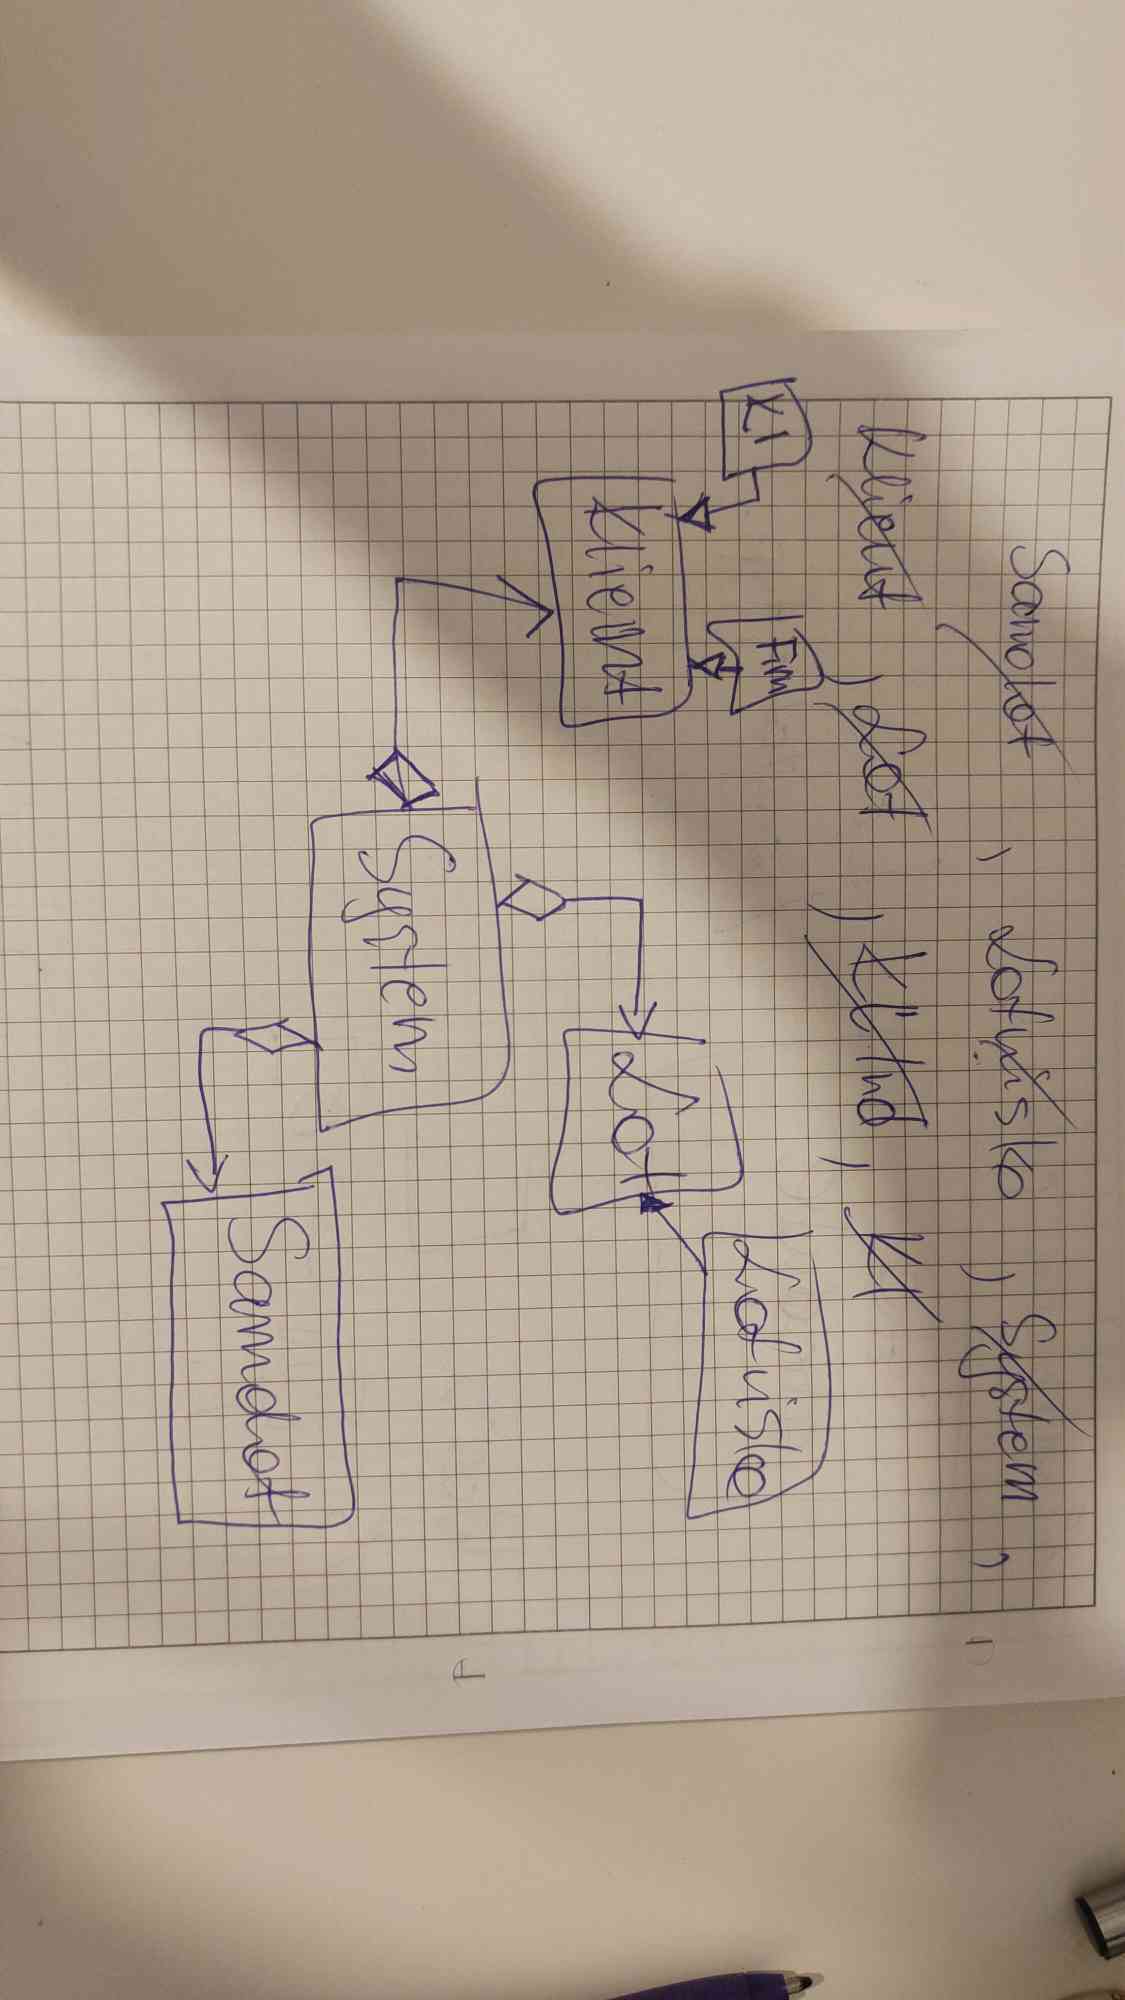 Samolot, Lotnisko, System,
Klient, Lot, Kl Ind, KI
KI
Firm
Lotnisko
Lot
Klient
System
Samolot